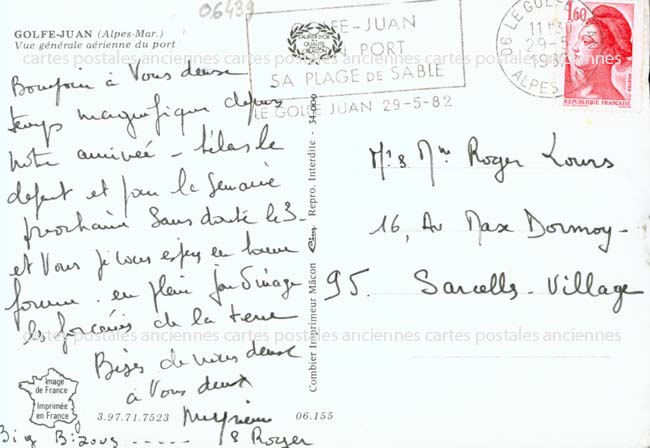 06439
GOLFE-JUAN (Alpes-Mar.)
Vue générale aérienne du port
GOLFE-JUAN
PORT
SA PLAGE DE SABLE
LE GOLFE JUAN 29-5-82
06 LE GOLFE
11H30
29-5
1982
ALPES
1,60
REPUBLIQUE FRANÇAISE
cartes postales anciennes cartes postales anciennes cartes postales anciennes
Bonjour à Vous deux
temps magnifique depuis
notre arrivée - hélas le
depart et pour la Semaine
prochaine Sans doute le 3-
et Vous je vous espère en bonne
forme. en plein jardinage
les forcenés de la terre
Bises de nous deux
à Vous deux
& Roger
Big Bizous -----
Mr & Mme Roger Louis
16, Av Max Dormoy-
95. Sarcelles-Village
Combier Imprimeur Mâcon Repro. Interdite - 34-000
cartes postales anciennes cartes postales anciennes cartes postales anciennes
Image
de France
Imprimée
en France
3.97.71.7523
06.155